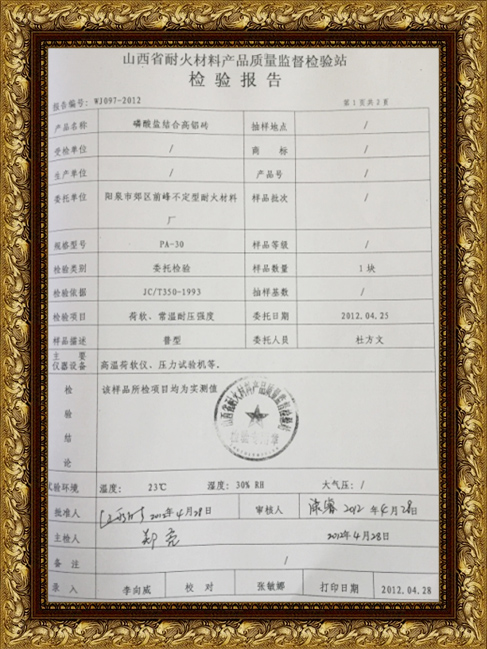 山西省耐火材料产品质量监督检验站
检验报告
报告编号: WJ097-2012 第1页共2页
产品名称 磷酸盐结合高铝砖 抽样地点 /
受检单位 / 商 标 /
生产单位 / 产品号 /
委托单位 阳泉市郊区前峰不定型耐火材料 样品批次 /
厂
规格型号 PA-30 样品等级 /
检验类别 委托检验 样品数量 1块
检验依据 JC/T350-1993 抽样基数 /
检验项目 荷软、常温耐压强度 委托日期 2012.04.25
样品描述 普型 委托人员 杜方文
主 要
仪器设备 高温荷软仪、压力试验机等.
检 该样品所检项目均为实测值
验
结
论
山西省耐火材料产品质量监督检验站
检验专用章
试验环境 温度: 23℃ 湿度: 30% RH 大气压: /
批准人 2012年4月28日 审核人 2012年4月28日
主检人 郑亮 2012年4月28日
备 注 /
录 入 李向威 校 对 张敏娜 打印日期 2012.04.28